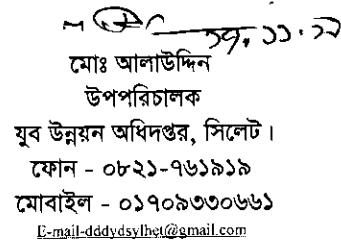 মোঃ আলাউদ্দিন
উপপরিচালক
যুব উন্নয়ন অধিদপ্তর, সিলেট।
ফোন - ০৮২১-৭৬১৯১৯
মোবাইল - ০১৭০৯৩৩০৬৬১
E-mail-dddydsylhet@gmail.com